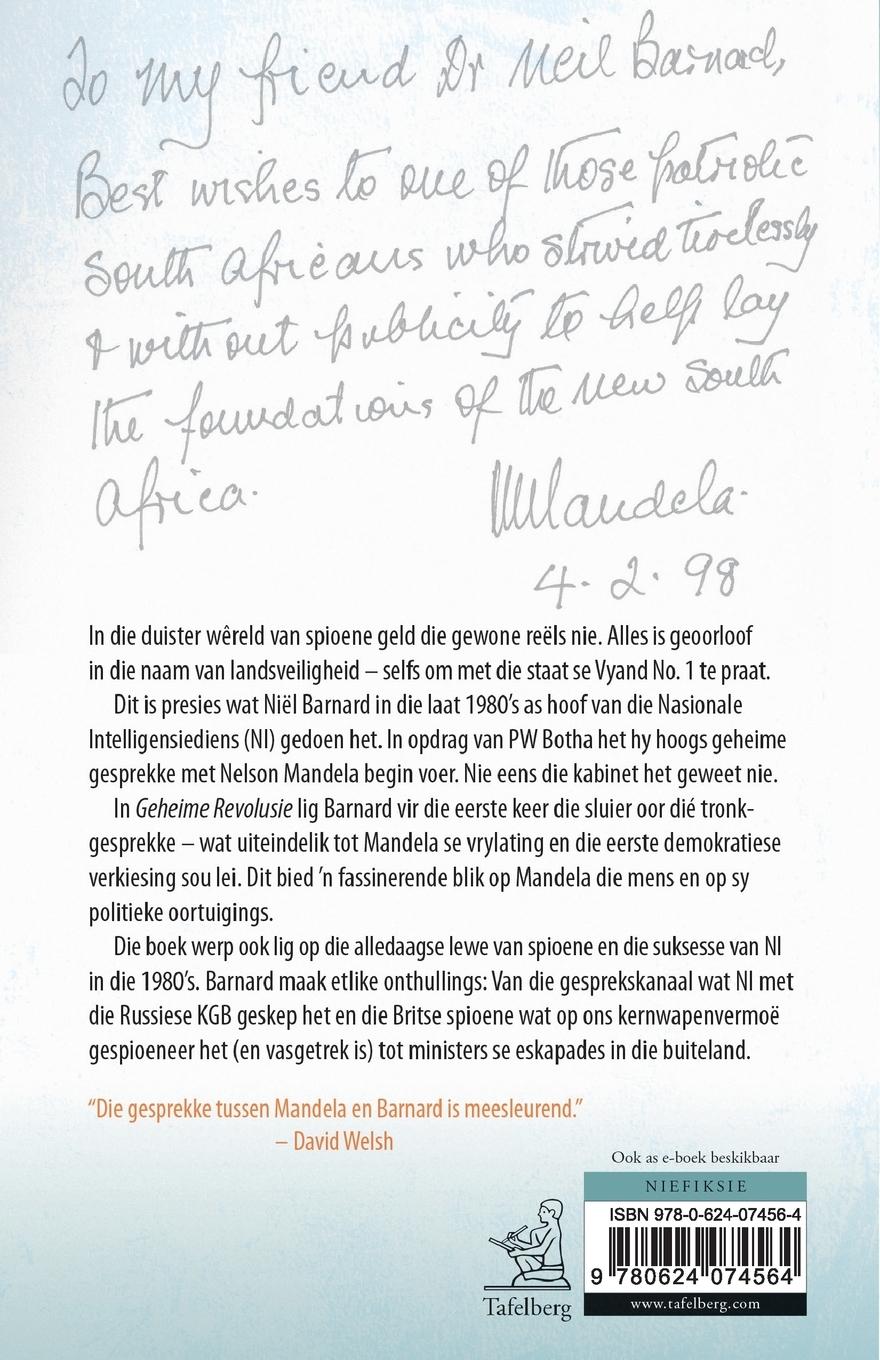 To my friend Dr Neil Barnad,
Best wishes to one of those patriotic
South Africans who strived tirelessly
& without publicity to help lay
the foundations of the new South
Africa.
NMandela.
4. 2. 98
In die duister wêreld van spioene geld die gewone reëls nie. Alles is geoorloof
in die naam van landsveiligheid – selfs om met die staat se Vyand No. 1 te praat.
Dit is presies wat Niël Barnard in die laat 1980’s as hoof van die Nasionale
Intelligensiediens (NI) gedoen het. In opdrag van PW Botha het hy hoogs geheime
gesprekke met Nelson Mandela begin voer. Nie eens die kabinet het geweet nie.
In Geheime Revolusie lig Barnard vir die eerste keer die sluier oor dié tronk-
gesprekke – wat uiteindelik tot Mandela se vrylating en die eerste demokratiese
verkiesing sou lei. Dit bied ’n fassinerende blik op Mandela die mens en op sy
politieke oortuigings.
Die boek werp ook lig op die alledaagse lewe van spioene en die suksesse van NI
in die 1980’s. Barnard maak etlike onthullings: Van die gesprekskanaal wat NI met
die Russiese KGB geskep het en die Britse spioene wat op ons kernwapenvermoë
gespioeneer het (en vasgetrek is) tot ministers se eskapades in die buiteland.
“Die gesprekke tussen Mandela en Barnard is meesleurend.”
– David Welsh
Ook as e-boek beskikbaar
NIEFIKSIE
ISBN 978-0-624-07456-4
9 780624 074564
www.tafelberg.com
Tafelberg